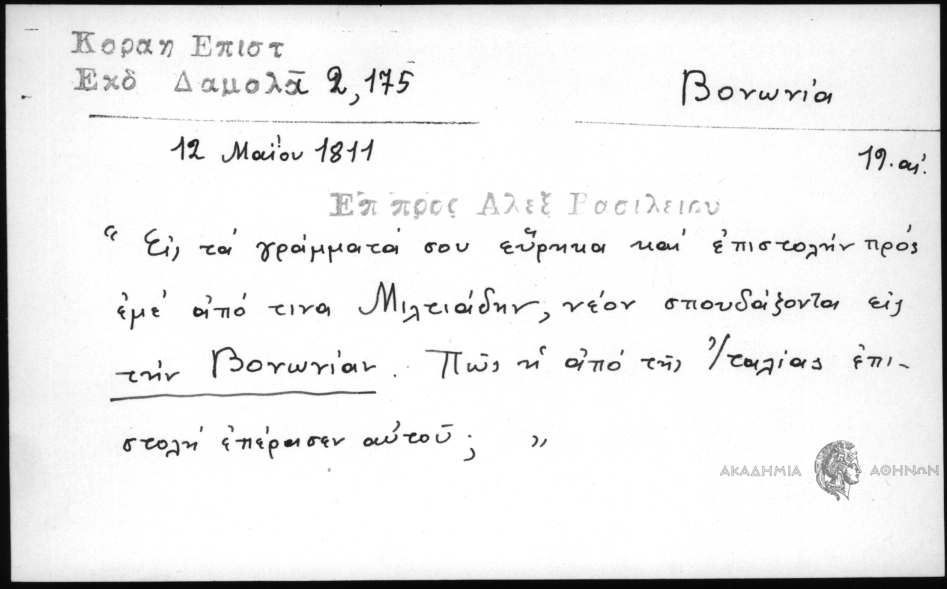 Κοραη Επιστ
Εκδ Δαμολᾶ 2,175
Βονωνία
12 Μαΐου 1811
19. αἰ.
Επ προς Αλεξ Βασιλειου
“ Εἰς τά γράμματά σου εὕρηκα καί ἐπιστολήν πρός
ἐμέ ἀπό τινα Μιλτιάδην, νέον σπουδάζοντα εἰς
τήν Βονωνίαν. Πῶς ἡ ἀπό τῆς Ἰταλίας ἐπι-
στολή ἐπέρασεν αὐτοῦ; ”
ΑΚΑΔΗΜΙΑ ΑΘΗΝΩΝ